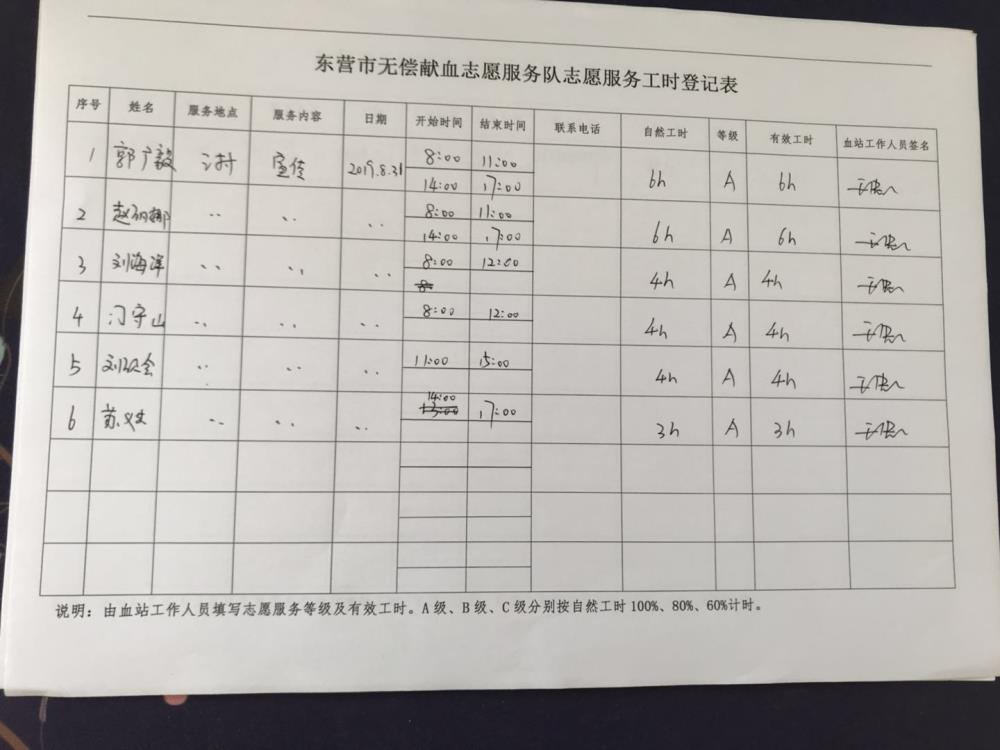 东营市无偿献血志愿服务队志愿服务工时登记表
序号 姓名 服务地点 服务内容 日期 开始时间 结束时间 联系电话 自然工时 等级 有效工时 血站工作人员签名
1 郭广毅 宣传 2019.8.31 8:00 11:00 6h A 6h
14:00 17:00
2 赵 娜 〃 〃 〃 8:00 11:00 6h A 6h
14:00 17:00
3 刘海洋 〃 〃 〃 8:00 12:00 4h A 4h
4 守山 〃 〃 〃 8:00 12:00 4h A 4h
5 刘 会 〃 〃 〃 11:00 15:00 4h A 4h
6 苏 〃 〃 〃 14:00 17:00 3h A 3h
说明：由血站工作人员填写志愿服务等级及有效工时。A级、B级、C级分别按自然工时100%、80%、60%计时。